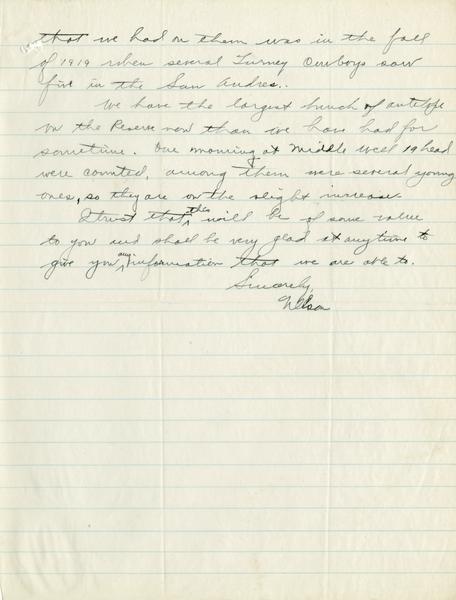 that we had on them was in the fall
of 1919 when several Turney Cowboys saw
five in the San Andres.
We have the largest bunch of antelope
on the Reserve now than we have had for
sometime. One morning at Middle Well 19 head
were counted, among them were several young
ones, so they are on the slight increase.
I trust that this will be of some value
to you and shall be very glad at anytime to
give you any information that we are able to.
Sincerely,